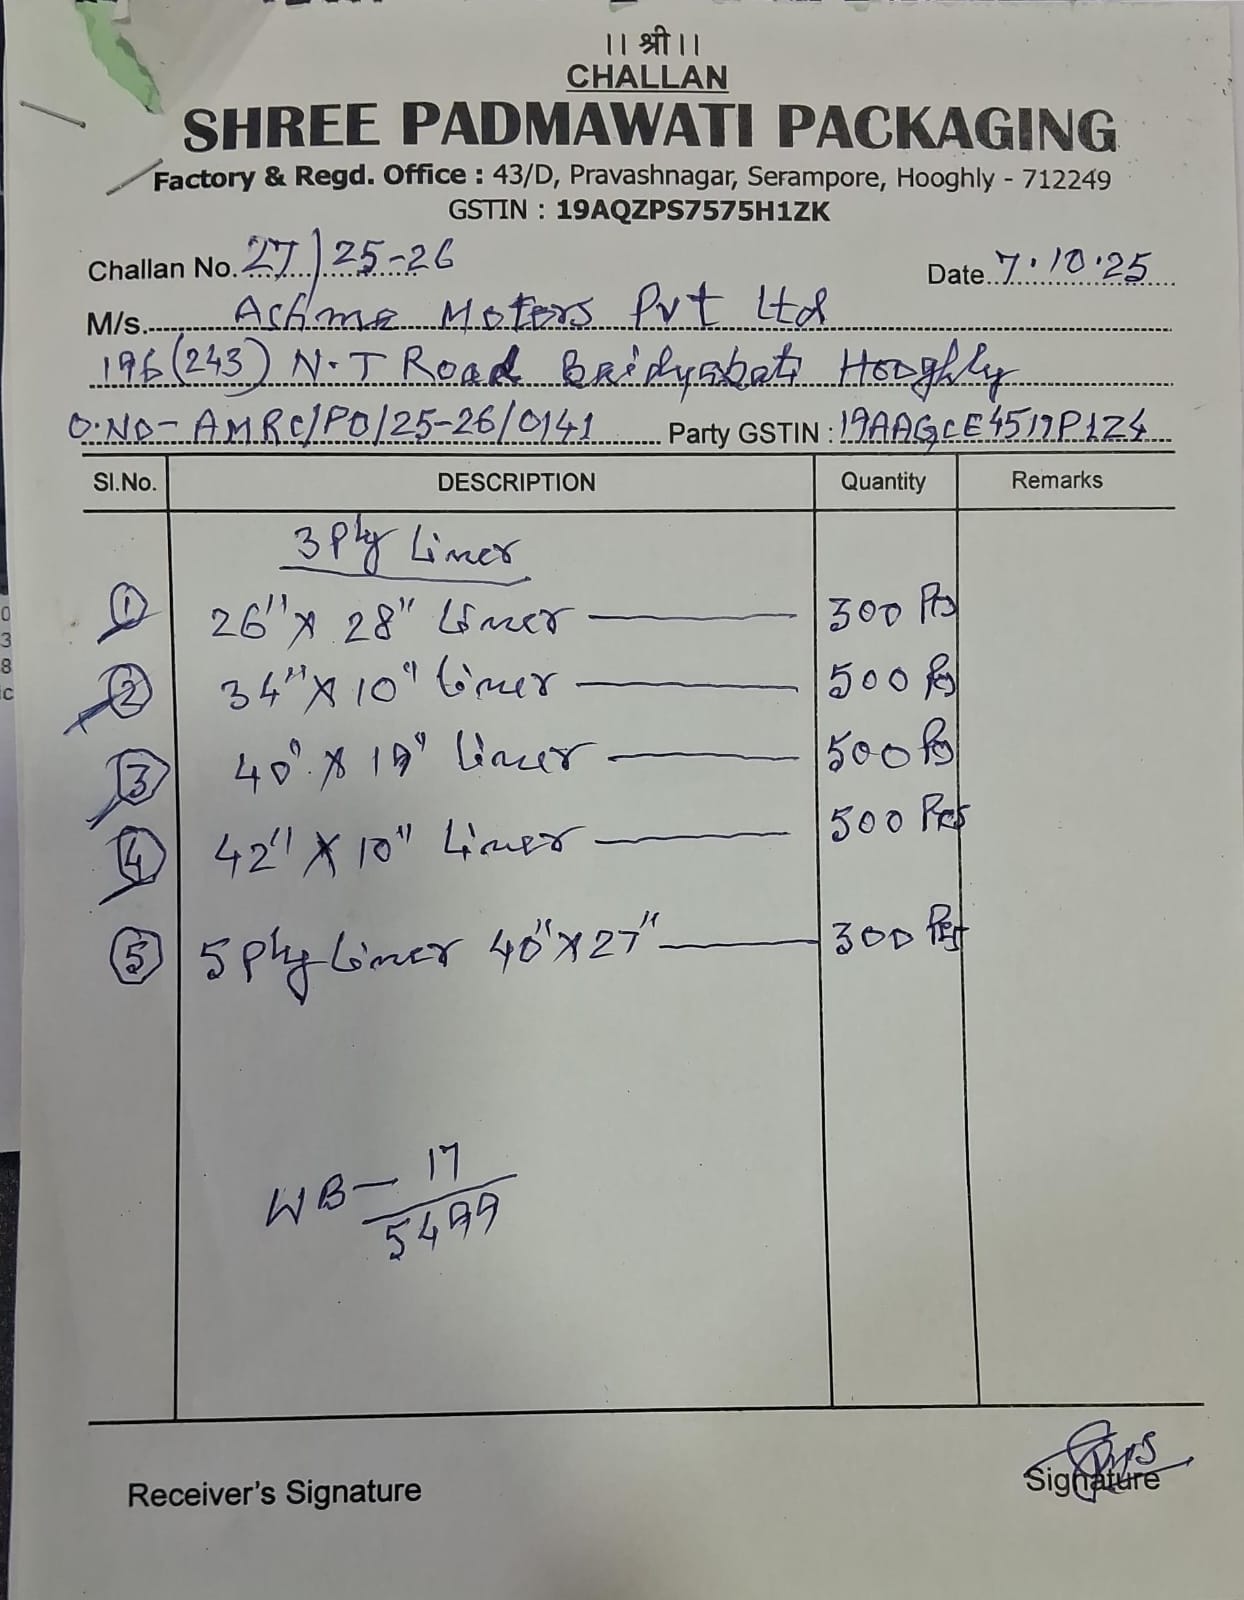 || श्री ||
CHALLAN
SHREE PADMAWATI PACKAGING
Factory & Regd. Office : 43/D, Pravashnagar, Serampore, Hooghly - 712249
GSTIN : 19AQZPS7575H1ZK
Challan No. 27/25-26 Date 7.10.25
M/s. Motors Pvt Ltd
196(243) N.T Road Baidyabati Hooghly
O.NO- AMRC/PO/25-26/0141 Party GSTIN : 19AAGCE4519P1Z4
Sl.No. DESCRIPTION Quantity Remarks
3 Ply Liner
1 26" X 28" Liner 300 Ps
2 34" X 10" Liner 500 Ps
3 40" X 19" Liner 500 Ps
4 42" X 10" Liner 500 Pcs
5 5 Ply Liner 40" X 27" 300 Pcs
WB- 17
5499
Receiver's Signature Signature